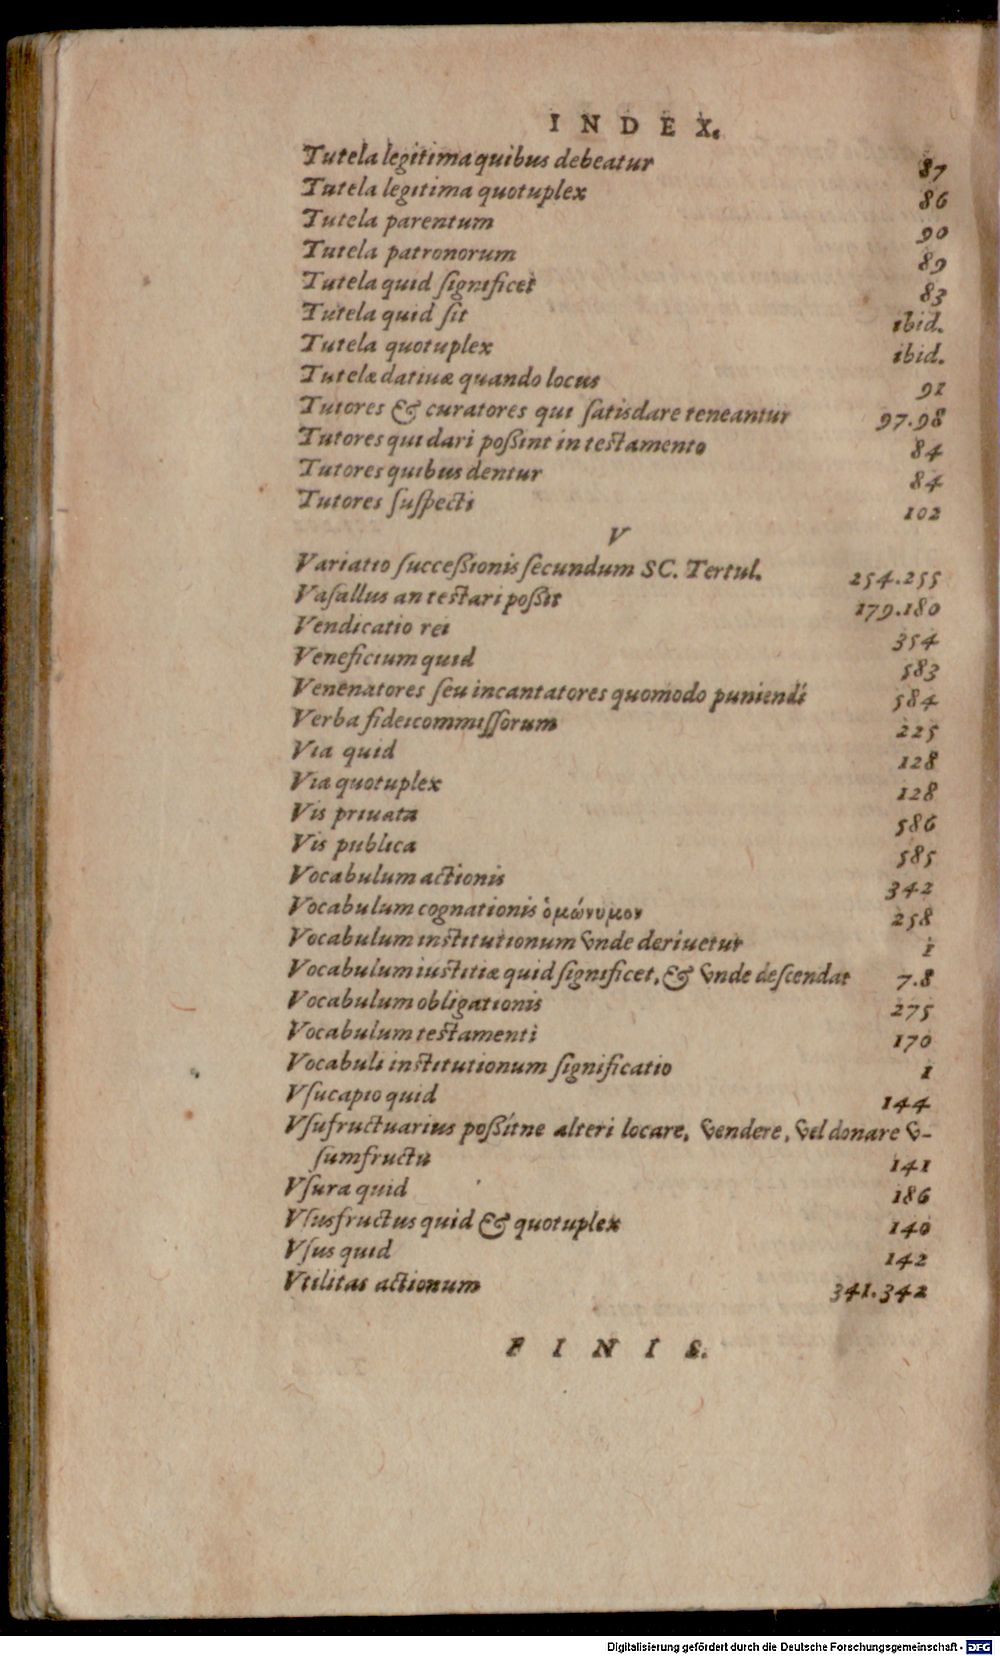 INDEX.
Tutela legitima quibus debeatur 87
Tutela legitima quotuplex 86
Tutela parentum 90
Tutela patronorum 89
Tutela quid ſignificet 83
Tutela quid ſit ibid.
Tutela quotuplex ibid.
Tutelæ datiuæ quando locus 91
Tutores & curatores qui ſatisdare teneantur 97.98
Tutores qui dari poßint in testamento 84
Tutores quibus dentur 84
Tutores ſuſpecti 102
V
Variatio ſucceßionis ſecundum SC. Tertul. 254.255
Vaſallus an testari poßit 179.180
Vendicatio rei 354
Veneficium quid 583
Venenatores ſeu incantatores quomodo puniendi 584
Verba fideicommiſſorum 225
Via quid 128
Via quotuplex 128
Vis priuata 586
Vis publica 585
Vocabulum actionis 342
Vocabulum cognationis ὁμώνυμον 258
Vocabulum institutionum vnde deriuetur 1
Vocabulum iustitiæ quid ſignificet, & vnde deſcendat 7.8
Vocabulum obligationis 275
Vocabulum testamenti 170
Vocabuli institutionum ſignificatio 1
Vſucapio quid 144
Vſufructuarius poßitne alteri locare, vendere, vel donare v-
ſumfructū 141
Vſura quid 186
Vſusfructus quid & quotuplex 140
Vſus quid 142
Vtilitas actionum 341.342
FINIS.
Digitalisierung gefördert durch die Deutsche Forschungsgemeinschaft - DFG